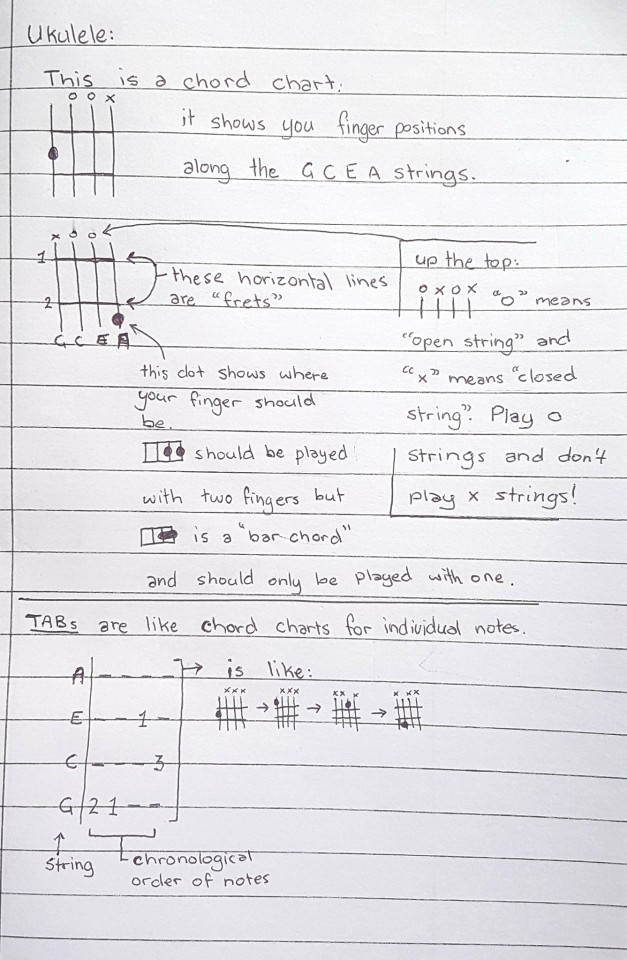 Ukulele:
This is a chord chart:
o o x
it shows you finger positions
along the G C E A strings.
x o o
1
2
G C E A
these horizontal lines
are "frets"
this dot shows where
your finger should
be.
should be played
with two fingers but
is a "bar chord"
and should only be played with one.
up the top:
o x o x "o" means
"open string" and
"x" means "closed
string". Play o
strings and don't
play x strings!
TABs are like chord charts for individual notes.
A - - - - → is like:
x x x → x x x → x x x → x x x
E - - 1 -
C - - - 3
G 2 1 - -
string
chronological
order of notes